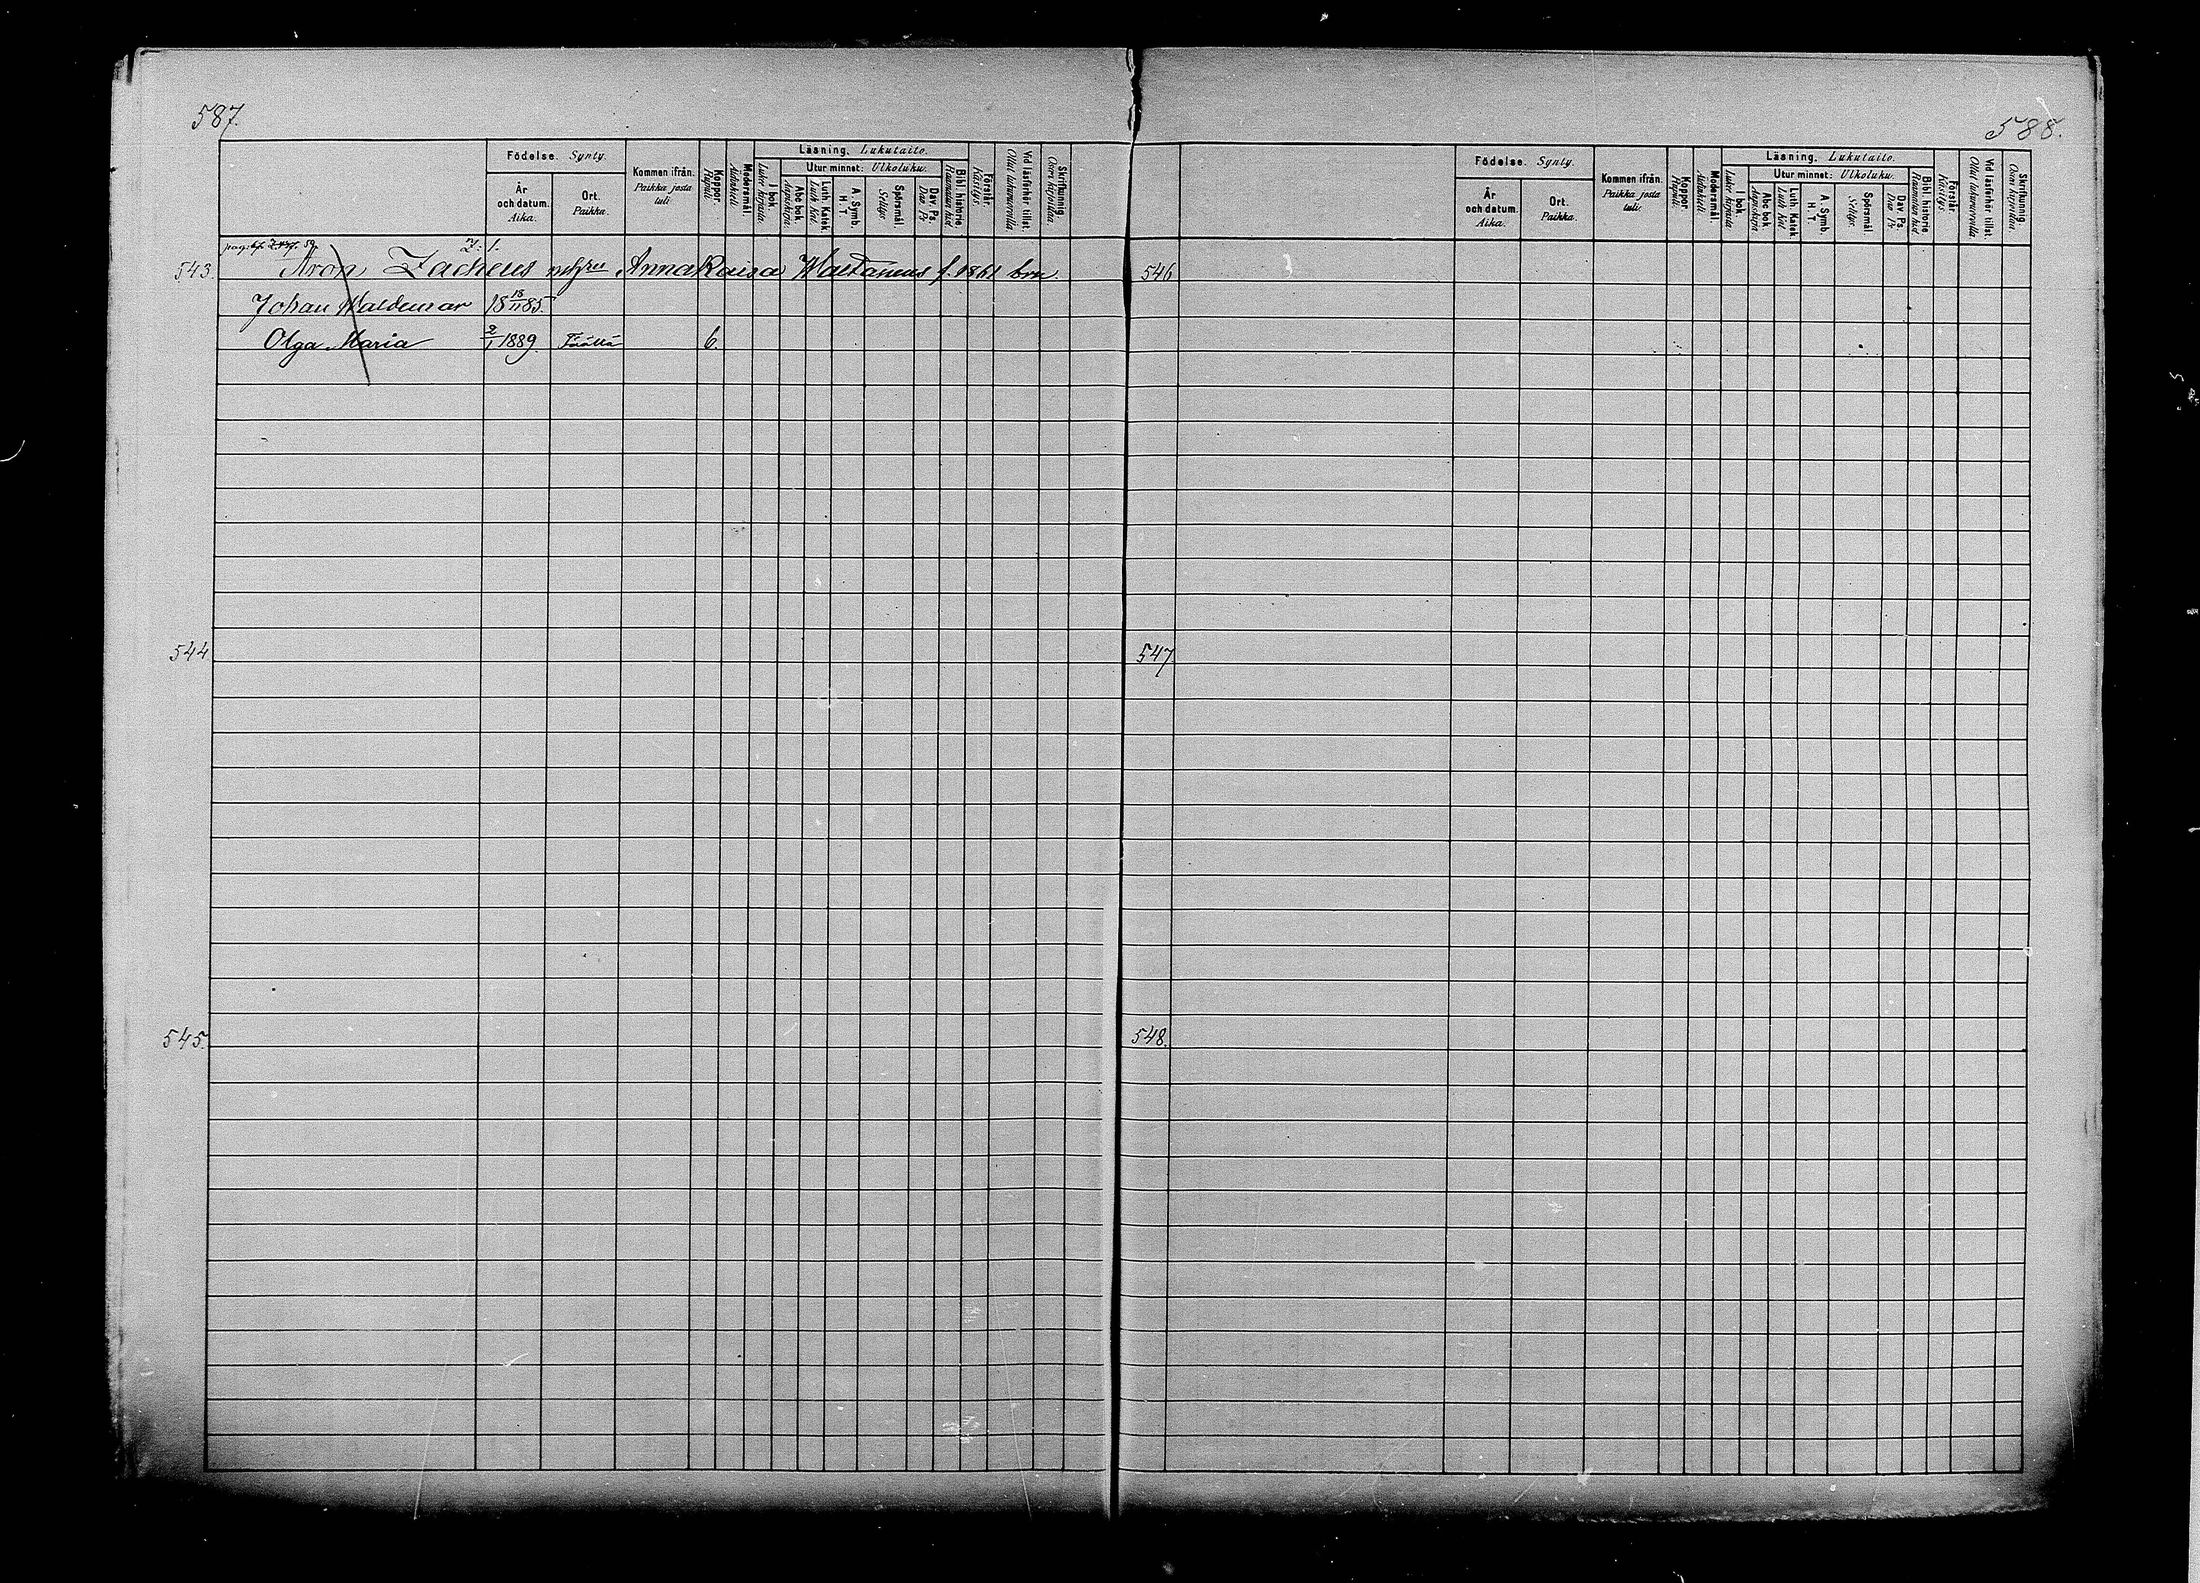 587.
Födelse. Synty.
Kommen ifrån. Paikka josta tuli
Koppor. Rupuli
Modersmål. Äidinkieli
Läsning. Lukutaito.
I bok. Luku kirjasta
Utur minnet: Ulkoluku.
Abc bok. Aapiskirja
Luth. Katek. Luth. Kat.
A. Symb. H. T.
Spörsmål. Selitys.
Dav. Ps. Dav. Ps
Bibl. historie
Förstår. Käsitys.
Vid läsförhör tillst. Ollut lukuvuorolla
Skrifkunnig.
År och datum. Aika.
Ort. Paikka.
2: 1.
543. Aron Zacheus Anna Kaisa f. 1861
Johan Waldemar 18 18/11 85.
Olga Maria 2/1 1889. Täällä 6.
544
545.
588.
Födelse. Synty.
Kommen ifrån. Paikka josta tuli.
Koppor. Rupuli.
Modersmål. Äidinkieli
Läsning. Lukutaito.
I bok.
Utur minnet: Ulkoluku.
Abc bok. Aapiskirja
Luth. Katek. Luth. Kat
A. Symb. H. T.
Spörsmål. Selitys.
Dav. Ps. Dav. Ps
Bibl. historie
Förstår. Käsitys.
Vid läsförhör tillst. Ollut lukuvuorolla
Skrifkunnig.
År och datum. Aika.
Ort. Paikka.
546
547
548.